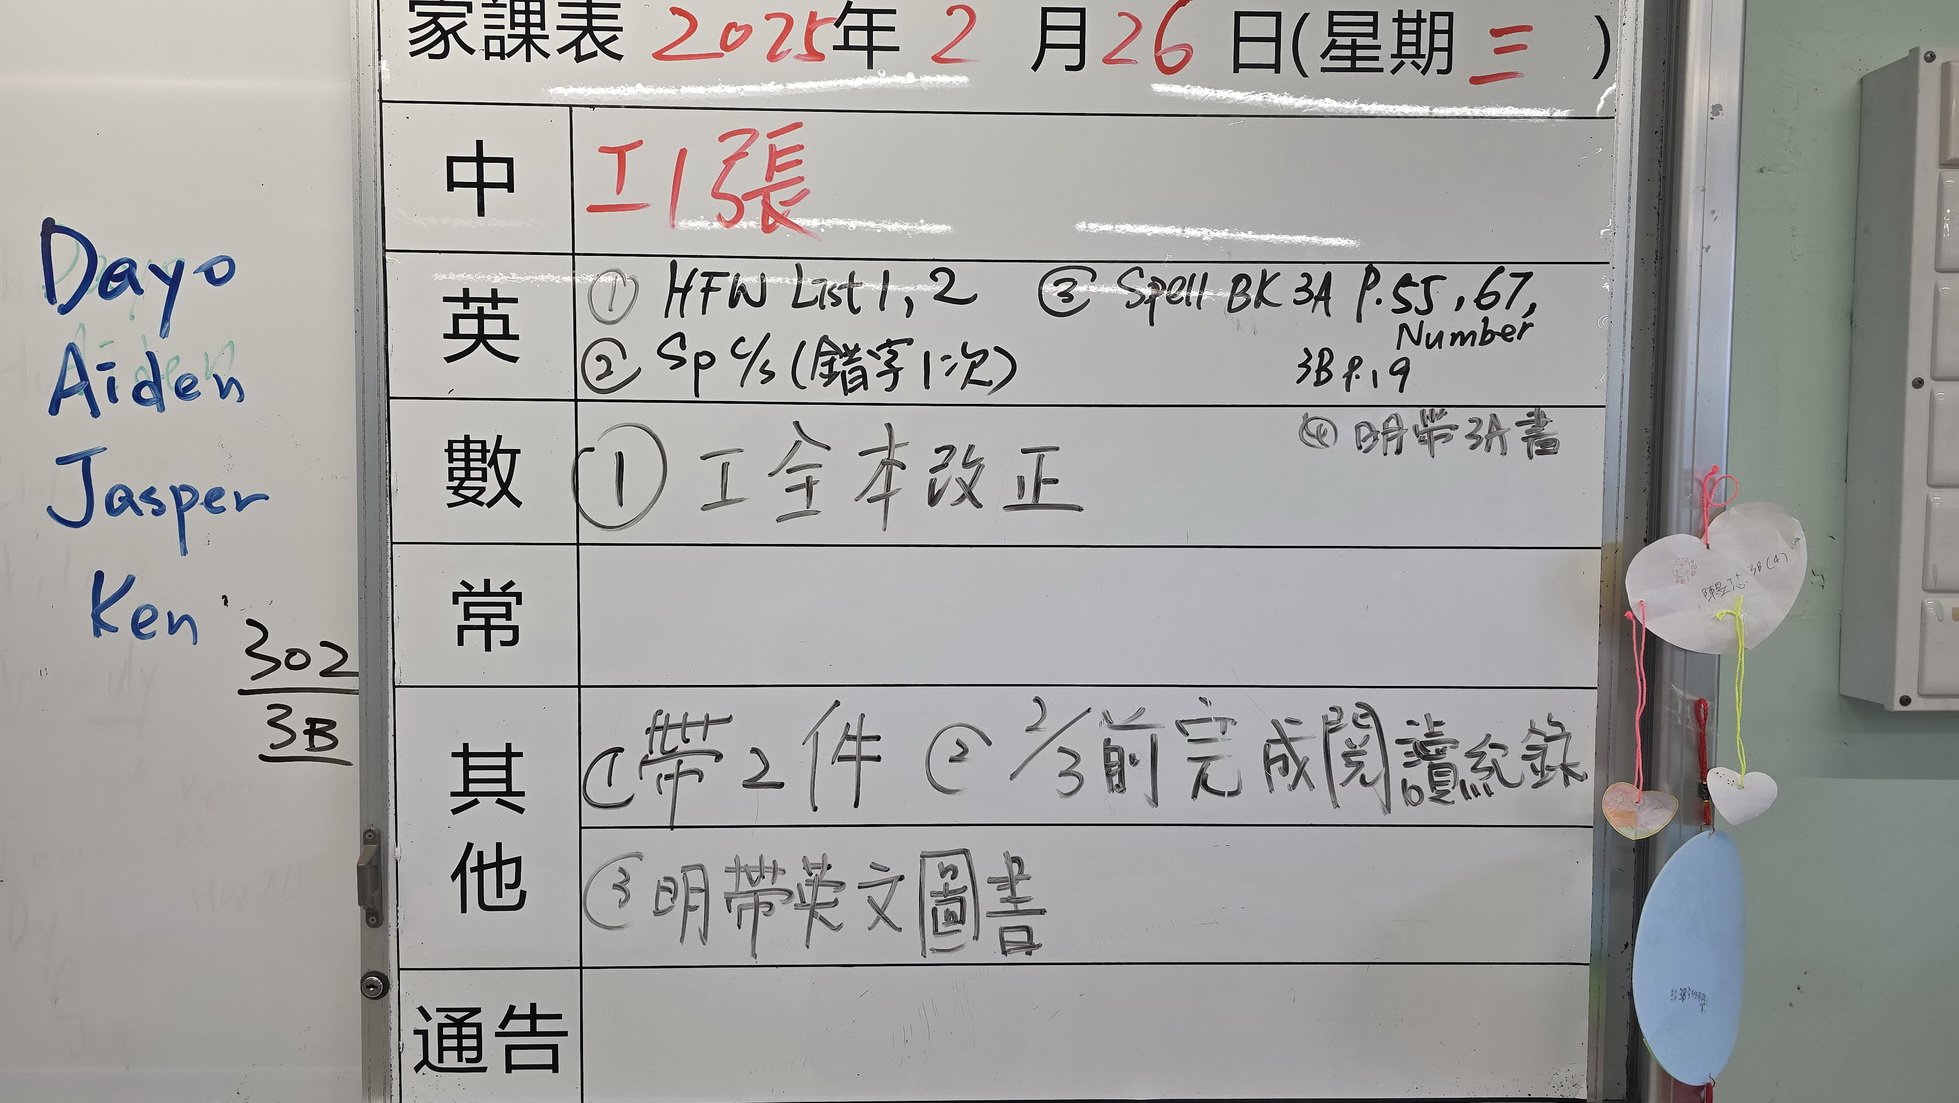 家課表 2025年 2 月 26 日(星期 三 )
中
工1張
英
① HFW List 1, 2
② Sp c/s (錯字1次)
③ Spell BK 3A P.55, 67,
Number
3B P.19
④ 明帶3A書
數
① 工全本改正
常
其他
① 帶2件 ② 2/3前完成閱讀紀錄
③ 明帶英文圖書
通告
Dayo
Aiden
Jasper
Ken
302
3B
3B(4)